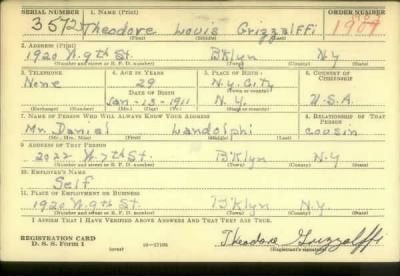 SERIAL NUMBER 1. NAME (Print) ORDER NUMBER
3572 Theodore Louis Grizzalffi 1909
(First) (Middle) (Last)
2. ADDRESS (Print)
1920 W. 9th St. B'Klyn N.Y
(Number and street or R. F. D. number) (Town) (County) (State)
3. TELEPHONE 4. AGE IN YEARS 5. PLACE OF BIRTH 6. COUNTRY OF CITIZENSHIP
None 29 N.Y. City
DATE OF BIRTH (Town or county)
Jan-13-1911 N.Y. U.S.A.
(Exchange) (Number) (Mo.) (Day) (Yr.) (State or country)
7. NAME OF PERSON WHO WILL ALWAYS KNOW YOUR ADDRESS 8. RELATIONSHIP OF THAT PERSON
Mr. Daniel Landolphi cousin
(Mr., Mrs., Miss) (First) (Middle) (Last)
9. ADDRESS OF THAT PERSON
2022 W. 7th St. B'Klyn N.Y
(Number and street or R. F. D. number) (Town) (County) (State)
10. EMPLOYER'S NAME
Self
11. PLACE OF EMPLOYMENT OR BUSINESS
1920 W. 9th St. B'Klyn N.Y.
(Number and street or R. F. D. number) (Town) (County) (State)
I AFFIRM THAT I HAVE VERIFIED ABOVE ANSWERS AND THAT THEY ARE TRUE.
REGISTRATION CARD Theodore Grizzalffi
D. S. S. Form 1 (over) 16—17105 (Registrant's signature)